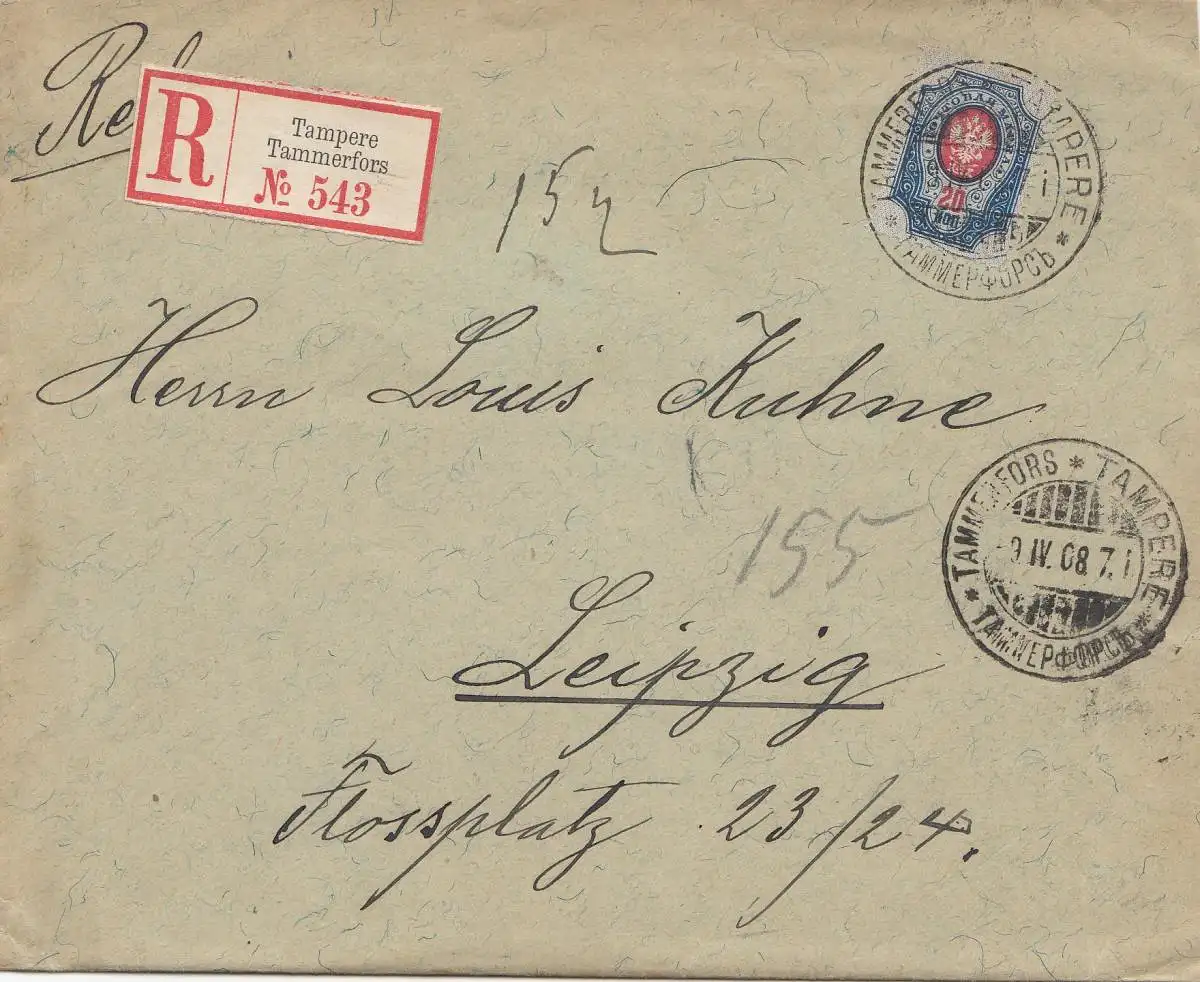 R
Tampere
Tammerfors
№ 543
ПОЧТОВАЯ МАРКА
20
КОП
TAMPERE
ТАММЕРФОРСЪ
Herrn Louis Kuhne
155
TAMMERFORS * TAMPERE
9.IV.08.7.
* ТАММЕРФОРСЪ *
Leipzig
Flossplatz 23/24.